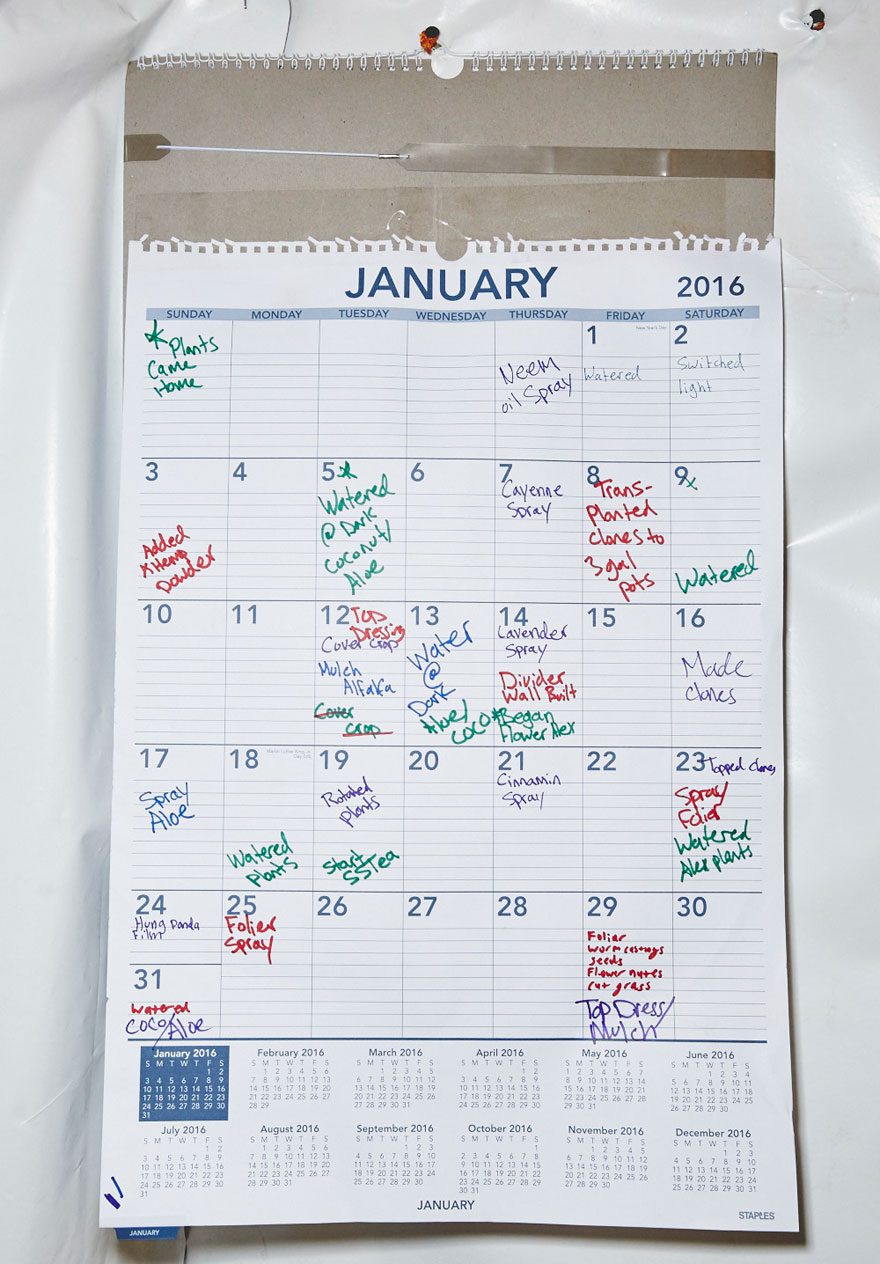 JANUARY
2016
SUNDAY MONDAY TUESDAY WEDNESDAY THURSDAY FRIDAY SATURDAY
Plants
Came
Home
Neem
oil Spray
1 New Year's Day
Watered
2
Switched
light
3
Added
Powder
4
5
Watered
@ Dark
Coconut/
Aloe
6
7
Cayenne
Spray
8
Trans-
Planted
clones to
3 gal
pots
9
Watered
10
11
12 Top
Dressing
Cover Crop
Mulch
Alfalfa
Cover
crop
13
Water
@
Dark
Aloe/
COCO
14
Lavender
Spray
Divider
Wall Built
Began
Flower Alex
15
16
Made
clones
17
Spray
Aloe
18 Martin Luther King, Jr.
Day
Watered
plants
19
Rotated
plants
Start
SSTea
20
21
Cinnamin
Spray
22
23 Topped clones
Spray
Folier
Watered
Alex plants
24
Hung Panda
Film
31
watered
COCO/Aloe
25
Folier
Spray
26
27
28
29
Folier
worm castings
seeds
Flower nutes
cut grass
Top Dress/
Mulch
30
January 2016
S M T W T F S
1 2
3 4 5 6 7 8 9
10 11 12 13 14 15 16
17 18 19 20 21 22 23
24 25 26 27 28 29 30
31
February 2016
S M T W T F S
1 2 3 4 5 6
7 8 9 10 11 12 13
14 15 16 17 18 19 20
21 22 23 24 25 26 27
28 29
March 2016
S M T W T F S
1 2 3 4 5
6 7 8 9 10 11 12
13 14 15 16 17 18 19
20 21 22 23 24 25 26
27 28 29 30 31
April 2016
S M T W T F S
1 2
3 4 5 6 7 8 9
10 11 12 13 14 15 16
17 18 19 20 21 22 23
24 25 26 27 28 29 30
May 2016
S M T W T F S
1 2 3 4 5 6 7
8 9 10 11 12 13 14
15 16 17 18 19 20 21
22 23 24 25 26 27 28
29 30 31
June 2016
S M T W T F S
1 2 3 4
5 6 7 8 9 10 11
12 13 14 15 16 17 18
19 20 21 22 23 24 25
26 27 28 29 30
July 2016
S M T W T F S
1 2
3 4 5 6 7 8 9
10 11 12 13 14 15 16
17 18 19 20 21 22 23
24 25 26 27 28 29 30
31
August 2016
S M T W T F S
1 2 3 4 5 6
7 8 9 10 11 12 13
14 15 16 17 18 19 20
21 22 23 24 25 26 27
28 29 30 31
September 2016
S M T W T F S
1 2 3
4 5 6 7 8 9 10
11 12 13 14 15 16 17
18 19 20 21 22 23 24
25 26 27 28 29 30
October 2016
S M T W T F S
1
2 3 4 5 6 7 8
9 10 11 12 13 14 15
16 17 18 19 20 21 22
23 24 25 26 27 28 29
30 31
November 2016
S M T W T F S
1 2 3 4 5
6 7 8 9 10 11 12
13 14 15 16 17 18 19
20 21 22 23 24 25 26
27 28 29 30
December 2016
S M T W T F S
1 2 3
4 5 6 7 8 9 10
11 12 13 14 15 16 17
18 19 20 21 22 23 24
25 26 27 28 29 30 31
JANUARY
STAPLES
JANUARY